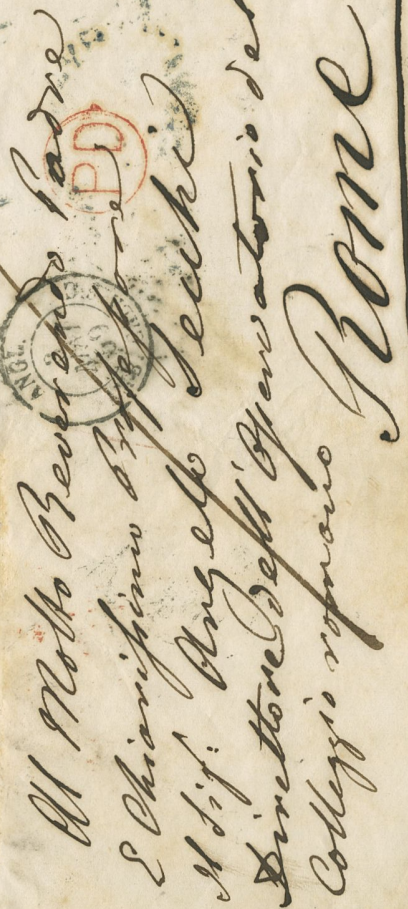 Al Molto Reverendo Padre
E Chiarissimo Professore,
Il Sig. Angelo Secchi
Direttore dell'Osservatorio del
Collegio romano
Rome
PD
ANGL.